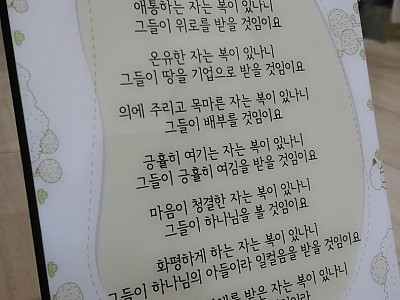 애통하는 자는 복이 있나니
그들이 위로를 받을 것임이요
온유한 자는 복이 있나니
그들이 땅을 기업으로 받을 것임이요
의에 주리고 목마른 자는 복이 있나니
그들이 배부를 것임이요
긍휼히 여기는 자는 복이 있나니
그들이 긍휼히 여김을 받을 것임이요
마음이 청결한 자는 복이 있나니
그들이 하나님을 볼 것임이요
화평하게 하는 자는 복이 있나니
그들이 하나님의 아들이라 일컬음을 받을 것임이요
받은 자는 복이 있나니